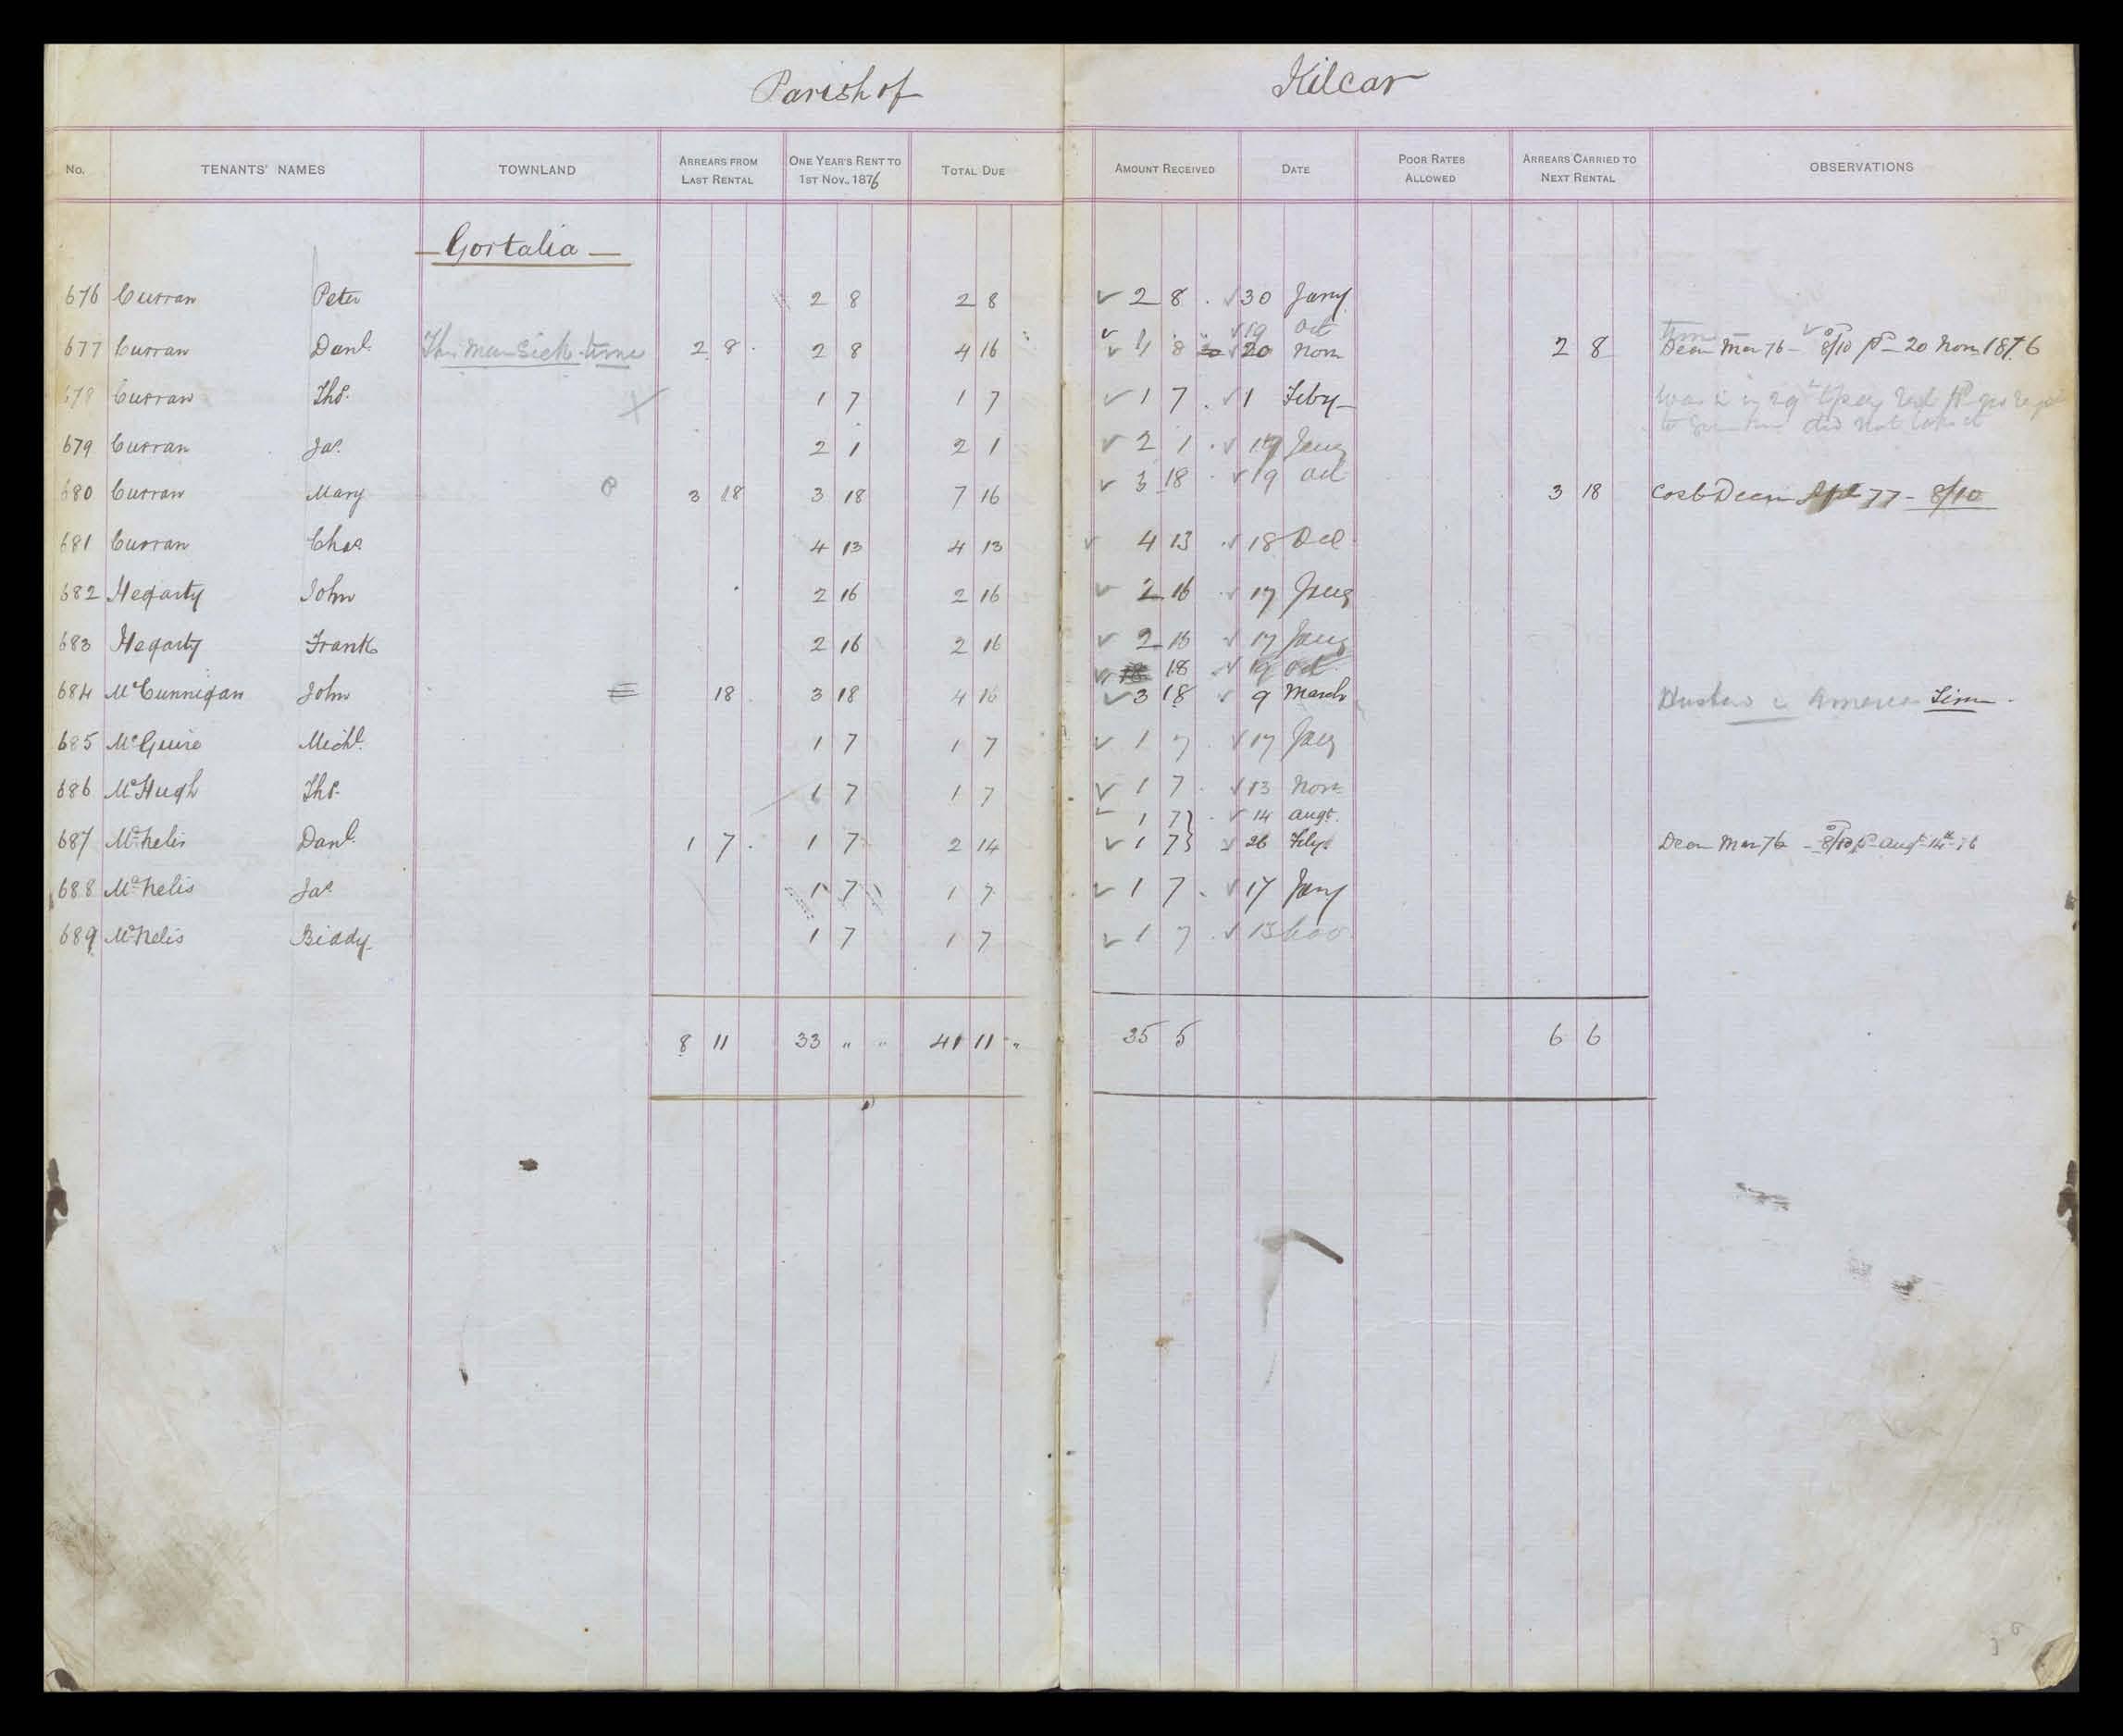 Parish of Kilcar
No. TENANTS' NAMES TOWNLAND ARREARS FROM LAST RENTAL ONE YEAR'S RENT TO 1ST NOV., 1876 TOTAL DUE AMOUNT RECEIVED DATE POOR RATES ALLOWED ARREARS CARRIED TO NEXT RENTAL OBSERVATIONS
Gortalia
676 Curran Peter 2 8 2 8 2 8 . 30 Jany
19 Oct time
677 Curran Danl. This man sick time 2 8 . 2 8 4 16 1 8 20 Novr 2 8 Decn Mar 76 - 8/10 pd 20 Novr 1876
678 Curran Ths. 1 7 1 7 1 7 . 1 Feby
did not
679 Curran Jas. 2 1 2 1 2 1 . 19 Jany
3 18 . 19 Oct
680 Curran Mary 3 18 3 18 7 16 3 18 Cost Decn 77 - 8/10
681 Curran Chas 4 13 4 13 4 13 . 18 Dec
682 Hegarty John 2 16 2 16 2 16 . 17 Jany
683 Hegarty Frank 2 16 2 16 2 16 17 Jany
18 19 Oct
684 McCunnigan John 18 3 18 4 16 3 18 9 March America Time
685 McGuire Michl. 1 7 1 7 1 7 . 17 Jany
686 McHugh Ths. 1 7 1 7 1 7 . 13 Novr
1 7 } . 14 Augt.
687 McNelis Danl. 1 7 . 1 7 2 14 1 7 } 26 Feby. Decn Mar 76 - 8/10 pd Augt 14th 76
688 McNelis Jas 1 7 1 7 1 7 . 17 Jany
689 McNelis Biddy 1 7 1 7 1 7 . 13 Nov
8 11 33 " " 41 11 " 35 5 6 6